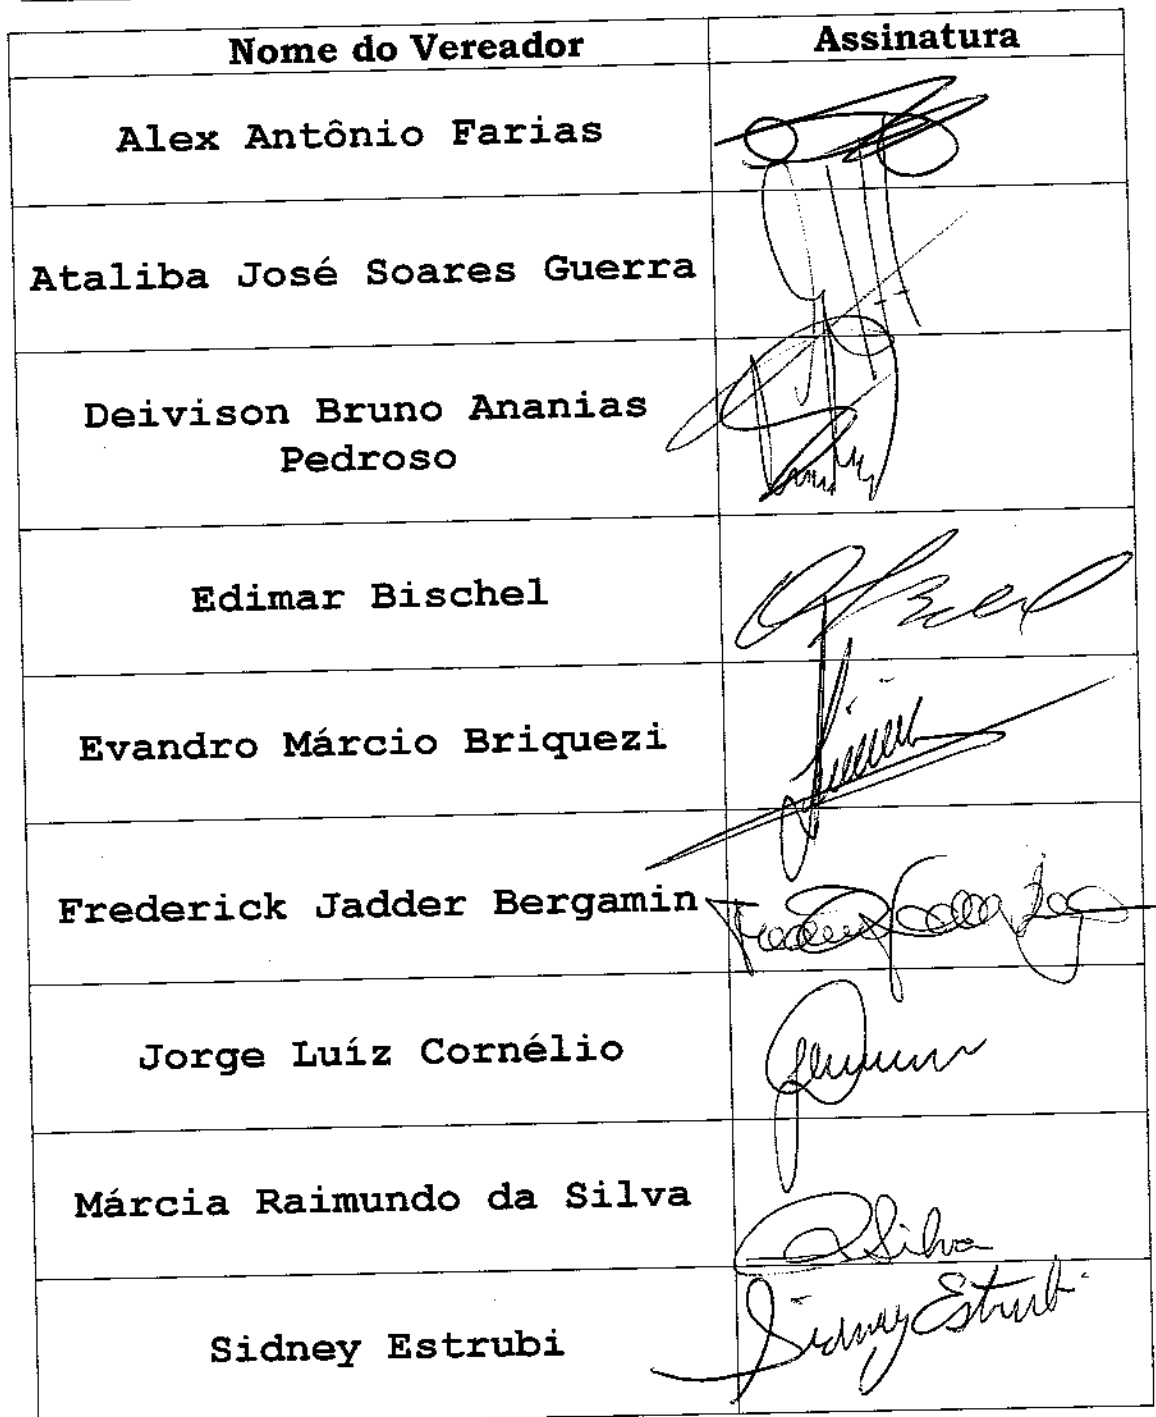 Nome do Vereador Assinatura
Alex Antônio Farias
Ataliba José Soares Guerra
Deivison Bruno Ananias
Pedroso
Edimar Bischel
Evandro Márcio Briquezi
Frederick Jadder Bergamin
Jorge Luíz Cornélio
Márcia Raimundo da Silva Silva
Sidney Estrubi Sidney Estrubi